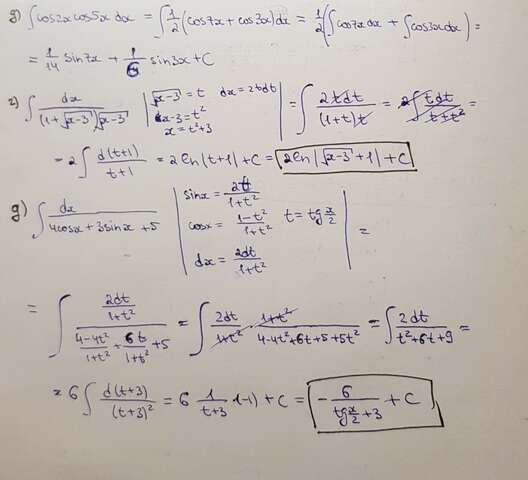 в) ∫cos2x cos5x dx = ∫1/2(cos7x + cos3x)dx = 1/2(∫cos7x dx + ∫cos3x dx) =
= 1/14 sin7x + 1/6 sin3x + C
г) ∫ dx/((1+√(x-3))√(x-3)) | √(x-3) = t dx = 2tdt x-3 = t² x = t²+3 | = ∫ 2tdt/((1+t)t) = 2∫ tdt/(t+t²) =
= 2∫ d(t+1)/(t+1) = 2ln|t+1| + C = 2ln|√(x-3)+1| + C
д) ∫ dx/(4cosx + 3sinx + 5) | sinx = 2t/(1+t²) cosx = (1-t²)/(1+t²) t = tg x/2 dx = 2dt/(1+t²) | =
= ∫ (2dt/(1+t²))/((4-4t²)/(1+t²) + 6t/(1+t²) + 5) = ∫ 2dt/(1+t²) · (1+t²)/(4-4t²+6t+5+5t²) = ∫ 2dt/(t²+6t+9) =
= 6∫ d(t+3)/(t+3)² = 6 1/(t+3) ·(-1) + C = - 6/(tg x/2 + 3) + C